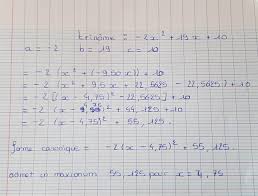 trinôme : -2x² + 19x + 10
a = -2 b = 19 c = 10
= -2 (x² + (-9,50x)) + 10
= -2 (x² + 9,5x + 22,5625 - 22,5625) + 10
= -2 [(x - 4,75)² - 22,5625] + 10
= -2 (x - 4,75)² + 45,125 + 10
= -2 (x - 4,75)² + 55,125.
forme canonique = -2(x - 4,75)² + 55,125
admet un maximum 55,125 pour x = 4,75